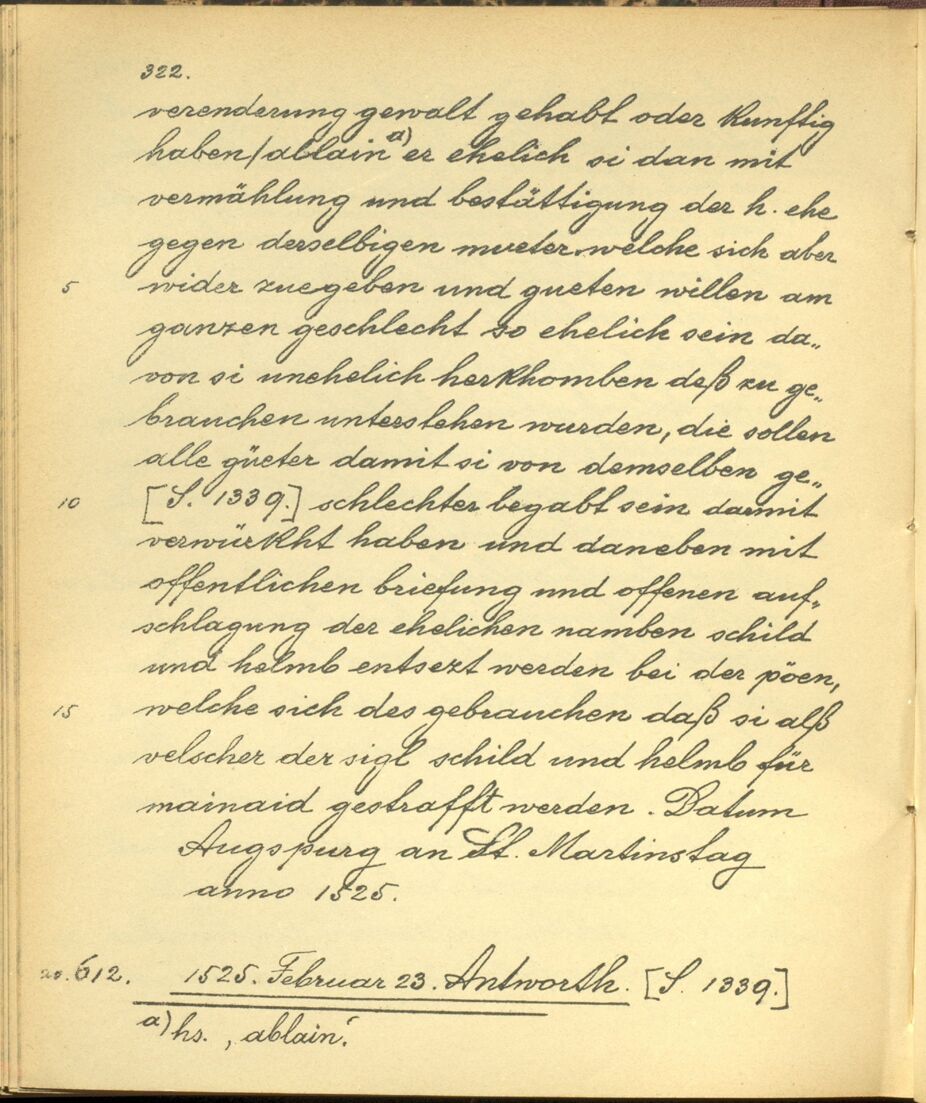 322.
verenderung gewalt gehabt oder kunftig
haben/ablain a) er ehelich si dan mit
vermählung und bestättigung der h. ehe
gegen derselbigen mueter, welche sich aber
5 wider zuegeben und gueten willen am
ganzen geschlecht so ehelich sein da„
von si unehelich herkhomben deß zu ge„
brauchen unterstehen wurden, die sollen
alle güeter damit si von demselben ge„
10 [S. 1339.] schlechter begabt sein darmit
verwürkht haben und daneben mit
offentlichen briefung und offenen auf„
schlagung der ehelichen namben schild
und helmb entsezt werden bei der pöen,
15 welche sich des gebrauchen daß si alß
velscher der sigl schild und helmb für
mainaid gestrafft werden. Datum
Augspurg an St. Martinstag
anno 1525.
no. 612. 1525. Februar 23. Antworth. [S. 1339.]
a) hs. ‚ablain‘.